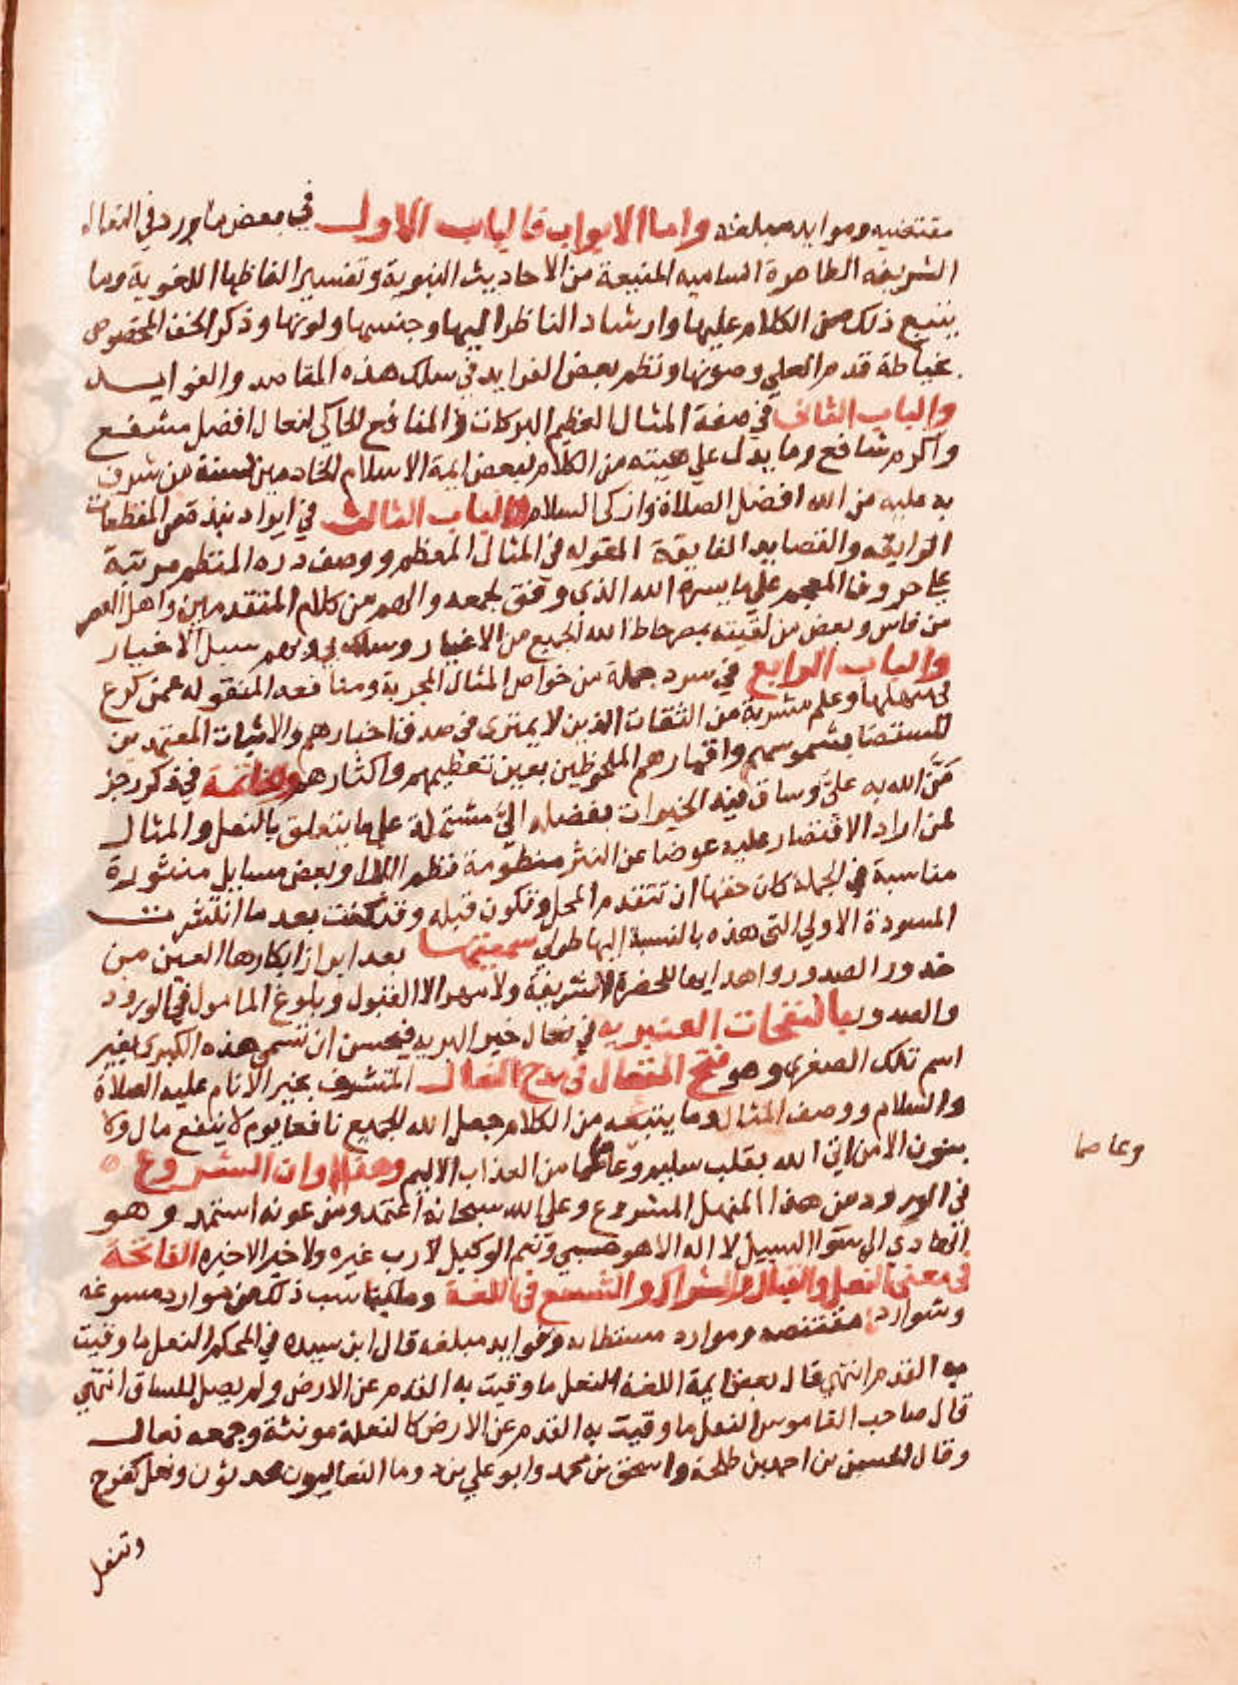 مقتضيه وموايد مبلغه واما الابواب فالباب الاول في بعض ما ورد في النعال
الشريفه الطاهرة الساميه المنيعة من الاحاديث النبوية وتفسير الفاظها اللغوية وما
يتبع ذلك من الكلام عليها وارشاد الناظر اليها وجنسها ولونها وذكر الخف المخصوص
بخياطة قدم العلي وصونها ونظم بعض الفرايد في سلك هذه المقاصد والفوايد
والباب الثاني في صفة المثال العظيم البركات والمنافع الحاكي لنعال افضل مشفع
واكرم شافع وما يدل علي هيئته من الكلام لبعض ايمة الاسلام الخادمين لسنة من شرف
به عليه من الله افضل الصلاة وازكي السلام والباب الثالث في ايراد نبذة من المقطعات
الرايقه والقصايد الفايقة المقوله في المثال المعظم ووصف دره المنتظم مرتبة
علي حروف المعجم علي ما يسره الله الذي وفق لجمعه والهم من كلام المتقدمين واهل العصر
من فاس وبعض من لقيته بمصر حاط الله الجميع من الاغيار وسلك بي وبهم سبيل الاخيار
والباب الرابع في سرد جملة من خواص المثال المجربة ومنافعه المنقوله عمن كرع
في منهلها وعلم مشربه من الثقات الذين لا يمترى في صدق اخبارهم والاثبات المعتمدين
المستضا بشموسهم واقمارهم الملحوظين بعين تعظيمهم واكثارهم والخاتمة في ذكر رجز
من الله به علي وساق فيه الخيرات بفضله الي مشتملة علي ما يتعلق بالنعل والمثال
لمن اراد الاقتصار عليه عوضا عن النثر منظومة نظم اللال وبعض مسايل منثورة
مناسبة في الجملة كان حقها ان تتقدم المحل وتكون قبله وقد كنت بعد ما انتشرت
المسودة الاولي التي هذه بالنسبة اليها طولي سميتها بعد ابراز ابكارها العين من
خدور الصدور واهدايها للحضرة الشريفة ولا مهر الا القبول وبلوغ المامول في الورود
والصدور بالنفحات العنبريه في نعال خير البريه فيحسن ان تسمي هذه الكبرى بغير
اسم تلك الصغرى وهو فتح المتعال في مدح النعال المتشرف بخير الانام عليه الصلاة
والسلام ووصف المثال وما يتبعه من الكلام جعل الله الجميع نافعا يوم لا ينفع مال ولا
بنون الا من اتي الله بقلب سليم وعاصما من العذاب الاليم وهذا اوان الشروع
وعاصما
في الورود من هذا المنهل المشروع وعلي الله سبحانه اعتمد ومن عونه استمد وهو
الهادي الي سوا السبيل لا اله الا هو حسبي ونعم الوكيل لا رب غيره ولا خير الا خيره الفاتحة
في معني النعل والقبال والشراك والشسع في اللغة وما يناسب ذلك من موارد مسوغه
وشوارد مقتنصه وموارد مستطابه وفوايد مبلغه قال ابن سيده في المحكم النعل ما وقيت
به القدم انتهي قال بعض ايمة اللغة النعل ما وقيت به القدم عن الارض ولم يصل للساق انتهي
قال صاحب القاموس النعل ما وقيت به القدم عن الارض كالنعلة مونثة وجمعه نعال
وقال الحسين بن احمد بن طلحة واسحق بن محمد وابو علي بن د وما النعاليون محدثون ونعل كفرح
وتنعل